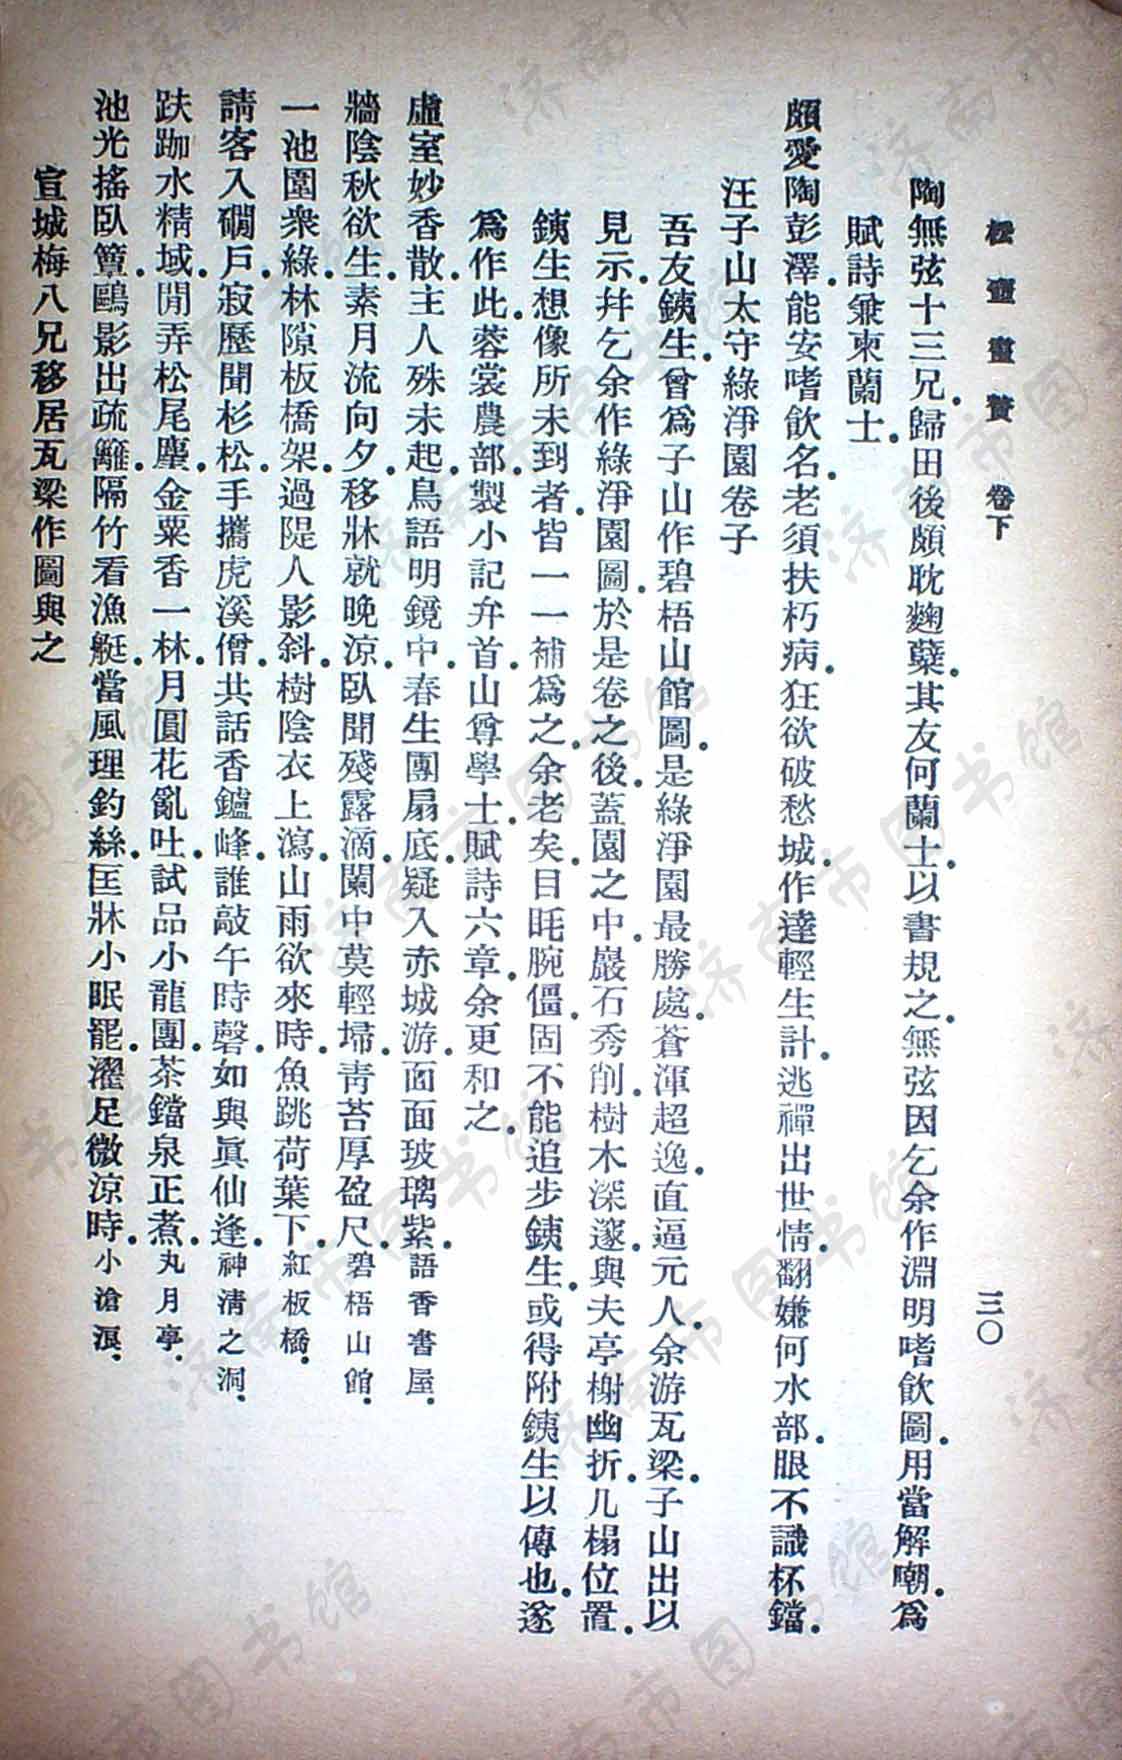 松壺畫贅 卷下 三〇
陶無弦十三兄.歸田後頗耽麴蘗.其友何蘭士.以書規之.無弦因乞余作淵明嗜飲圖.用當解嘲.爲
賦詩兼柬蘭士.
頗愛陶彭澤.能安嗜飲名.老須扶朽病.狂欲破愁城.作達輕生計.逃禪出世情.翻嫌何水部.眼不識杯鐺.
汪子山太守綠淨園卷子
吾友銕生.曾爲子山作碧梧山館圖.是綠淨園最勝處.蒼渾超逸.直逼元人.余游瓦梁.子山出以
見示.幷乞余作綠淨園圖.於是卷之後.蓋園之中.巖石秀削.樹木深邃.與夫亭榭幽折.几榻位置.
銕生想像所未到者.皆一一補爲之.余老矣.目眊腕僵.固不能追步銕生.或得附銕生以傳也.遂
爲作此.蓉裳農部.製小記弁首.山尊學士.賦詩六章.余更和之.
虛室妙香散.主人殊未起.鳥語明鏡中.春生團扇底.疑入赤城游.面面玻璃紫.語香書屋.
牆陰秋欲生.素月流向夕.移牀就晚涼.臥聞殘露滴.闌中莫輕埽.靑苔厚盈尺.碧梧山館.
一池圍衆綠.林隙板橋架.過隄人影斜.樹陰衣上瀉.山雨欲來時.魚跳荷葉下.紅板橋.
請客入磵戶.寂歷聞杉松.手攜虎溪僧.共話香鑪峰.誰敲午時磬.如與眞仙逢.神淸之洞.
趺跏水精域.閒弄松尾麈.金粟香一林.月圓花亂吐.試品小龍團.茶鐺泉正煮.丸月亭.
池光搖臥簟.鷗影出疏籬.隔竹看漁艇.當風理釣絲.匡牀小眠罷.濯足微涼時.小滄溟.
宣城梅八兄移居瓦梁作圖與之
济南市图书馆